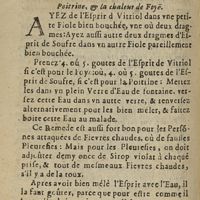 Poitrine, & la chaleur de Foye.
AYEZ de l'Esprit de Vitriol dans vne peti-
te Fiole bien bouchée, vne où deux drag-
mes: Ayez aussi autre deux dragmes d'Es-
prit de Soufre dans vn autre Fiole pareillement
bien bouchée.
Prenez 4. où 5. goutes de l'Esprit de Vitriol
si c'est pour les 4. où 5. goutes de
l'Esprit de Soufre, si c'est pour la Poitrine: Mettez
les dans vn plein Verre d'Eau de fontaine. Vui-
dez cette Eau dans vn autre verre, & renversez
alternativement pour les bien méler, & faites
boite cette Eau au malade.
Ce Remede est aussi fort bon pour les Perso-
nes attaquées de Fievres chaudes, où de fausses
Pleuresies: Mais pour les Pleuresies, on doit
adjoûter demy once de Sirop violat à chaque
prise, & tout de mesmeaux Fievres chaudes,
s'il y a de la toux.
Apres avoir bien mêlé l'Esprit avec l'Eau, il
la faut goûter, parce que pour estre comme